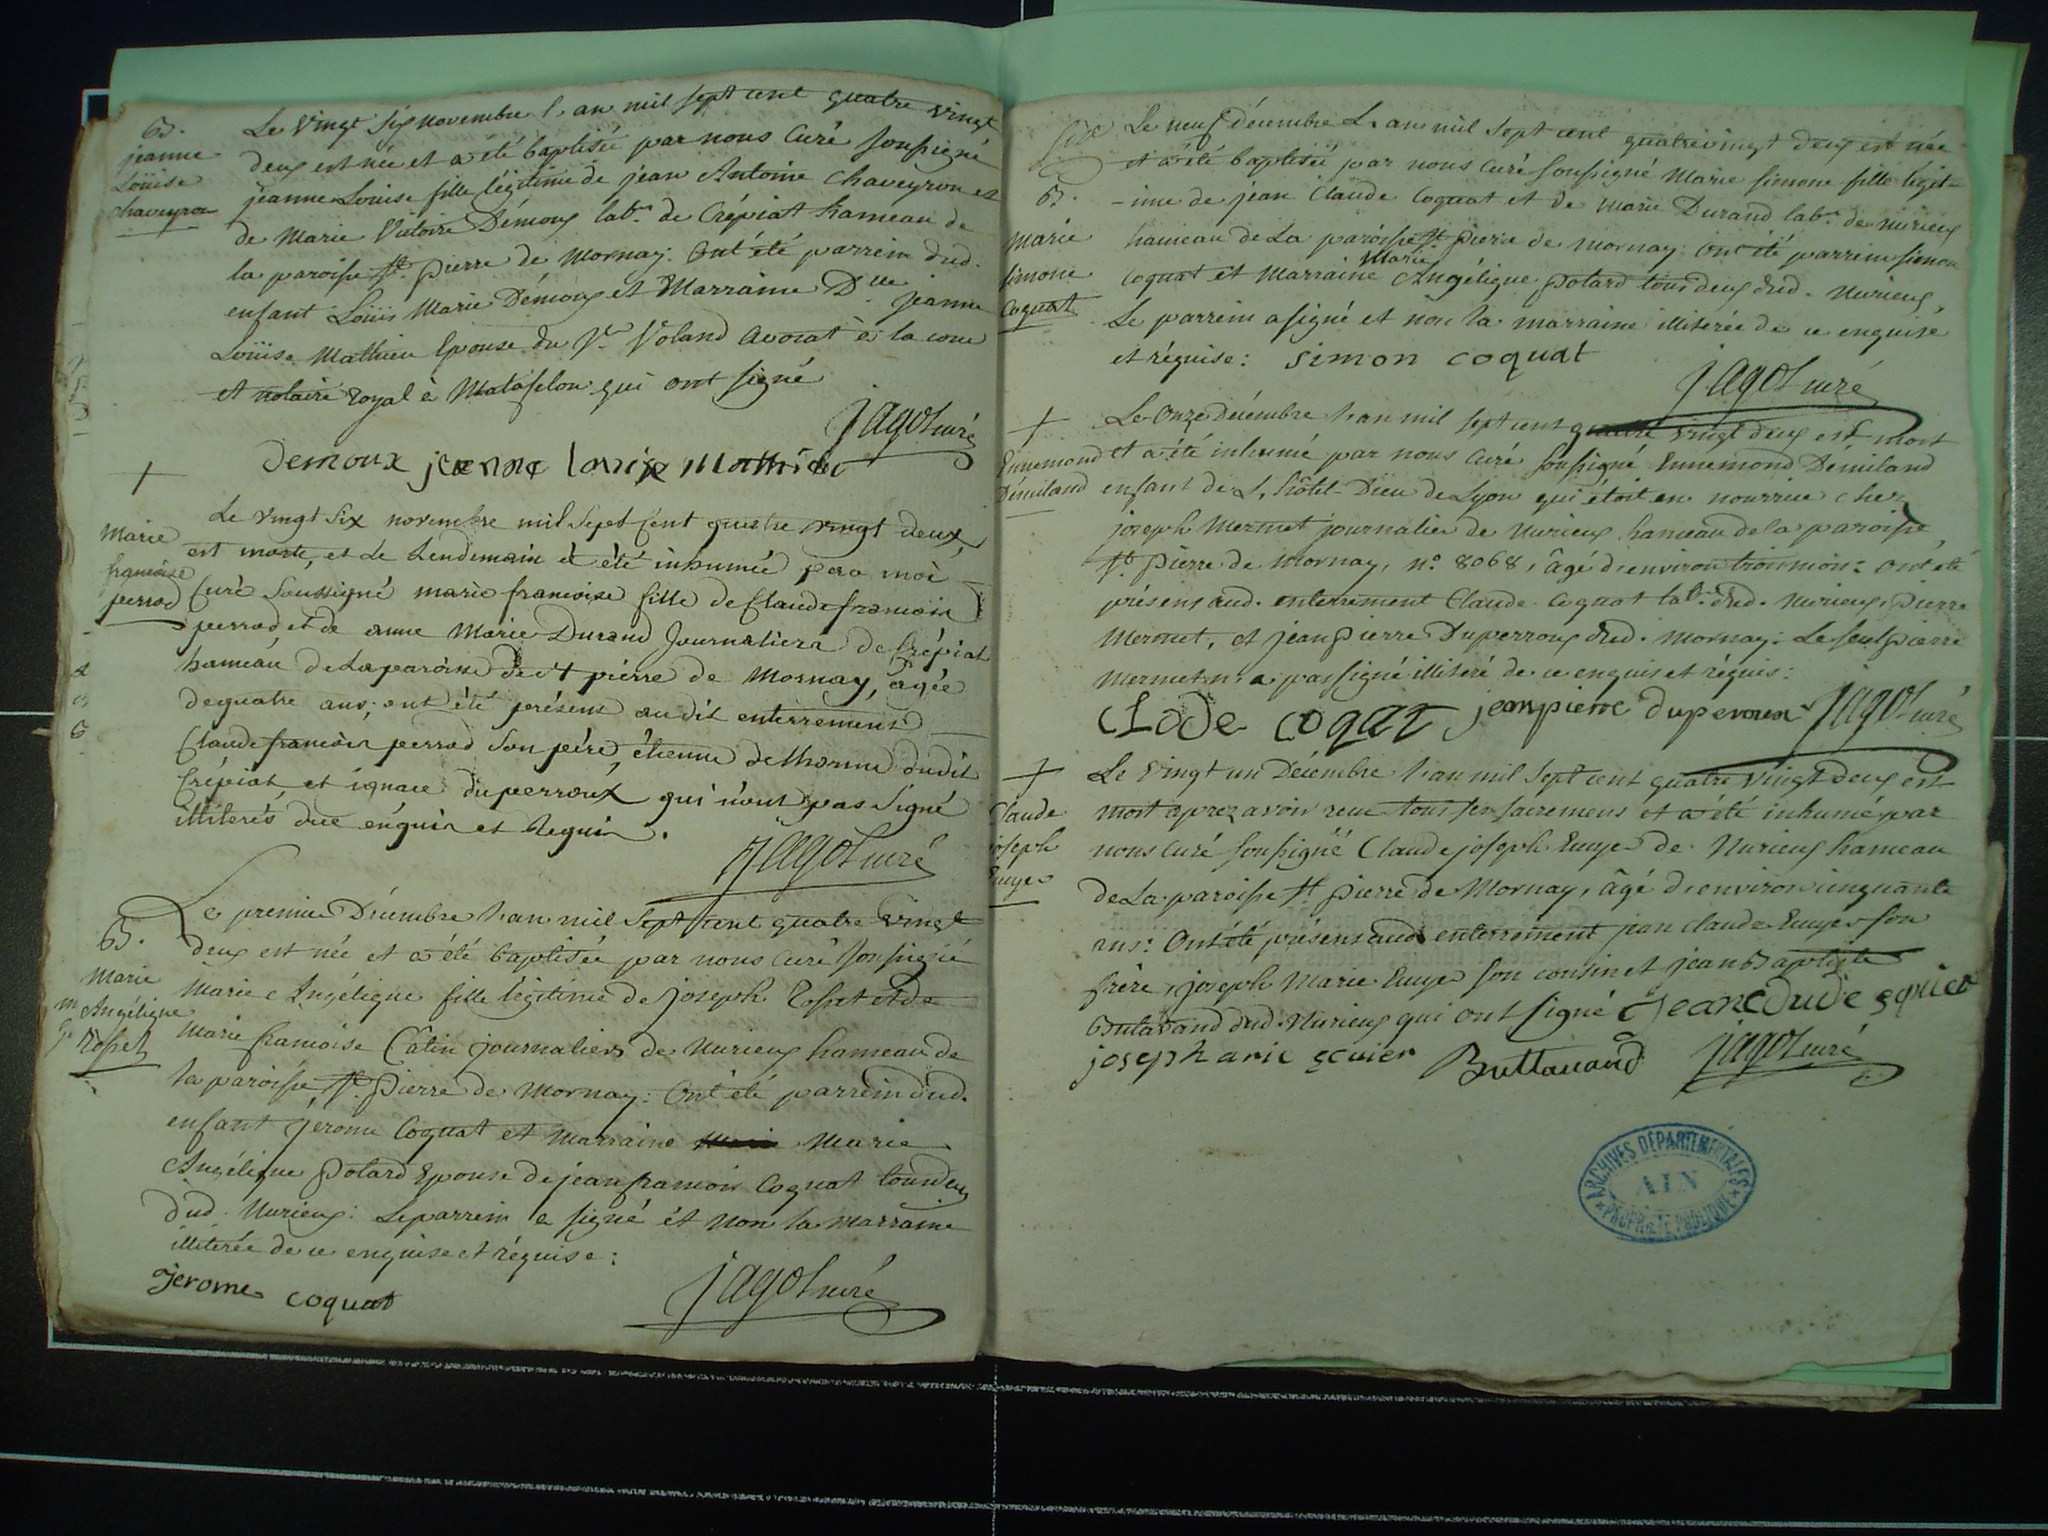 B.
jeanne
Loüise
Chaveyron
Le vingt six novembre l'an mil sept cent quatre vingt
deux est née et a été baptisée par nous curé soussigné
jeanne Louise fille légitime de jean Antoine Chaveyron et
de Marie Victoire Démoux labr. de Crépiat hameau de
la paroisse St. pierre de Mornay: Ont été parrein dud.
enfant Loüis Marie Démoux et Marraine Dlle jeanne
Loüise Mathieu Epouse du Sr. Voland avocat à la cour
et notaire royal à Matafelon qui ont signé
jagot curé
demoux jeanne louise Mathieu
+
Marie
francoise
perrod
Le vingt six novembre mil sept cent quatre vingt deux
est morte, et le Lendemain a été inhumée par moi
Curé Soussigné marie francoise fille de Claude francois
perrod, et de anne Marie Durand Journaliers de Crépiat
hameau de la paroisse de st pierre de Mornay, agée
de quatre ans; ont été présens audit enterrement
Claude francois perrod son père, étienne delhomme dudit
Crépiat, et ignace duperroux qui n'ont pas signé
illiterés de ce enquis et requis.
jagot curé
B.
Marie
Angélique
Rosset
Le premier Décembre l'an mil sept cent quatre vingt
deux est née et a été baptisée par nous curé soussigné
Marie Angélique fille légitime de joseph Rosset et de
Marie francoise Câtin journaliers de Nurieux hameau de
la paroisse St. pierre de Mornay: Ont été parrein dud.
enfant jerome Coquat et Marraine Marie
Angélique Potard Epouse de jean francois Coquat tous deux
dud. Nurieux: Le parrein a signé et non la marraine
illiterée de ce enquise et réquise:
jerome coquat
jagot curé
B.
Marie
simone
Coquat
Le neuf décembre L'an mil sept cent quatre vingt deux est née
et a été baptisée par nous curé soussigné Marie simone fille légit-
-ime de jean Claude Coquat et de Marie Durand labrs. de Nurieux
hameau de La paroisse St. pierre de Mornay: Ont été parrein simon
Coquat et Marraine Marie Angélique Potard tous deux dud. Nurieux.
Le parrein a signé et non la marraine illiterée de ce enquise
et réquise: simon coquat
jagot curé
+
Ennemond
Démiland
Le Onze décembre l'an mil sept cent quatre vingt deux est mort
et a été inhumé par nous curé soussigné Ennemond Démiland
enfant de L'hôtel-Dieu de Lyon qui étoit en nourrice chez
joseph Mermet journalier de Nurieux hameau de la paroisse
St. Pierre de Mornay, n.o 8068, âgé d'environ trois mois: Ont été
présens aud. enterrement Claude Coquat labr. dud. Nurieux, pierre
Mermet, et jean Pierre Duperroux dud. Mornay: Le seul pierre
Mermet n'a pas signé illiteré de ce enquis et réquis:
CLODe COQAT jeanpierre duperoux jagot curé
+
Claude
joseph
Le vingt un Décembre l'an mil sept cent quatre vingt deux est
mort après avoir reçu tous ses sacremens et a été inhumé par
nous curé soussigné Claude joseph de Nurieux hameau
de La paroisse St pierre de Mornay, âgé d'environ cinquante
ans: Ont été présens aud. enterrement jean Claude son
frère, joseph Marie son cousin et jean Baptiste
Buttavand dud. Nurieux qui ont signé
Buttauand jagot curé
ARCHIVES DÉPARTEMENTALES
AIN
PROPRIÉTÉ PUBLIQUE